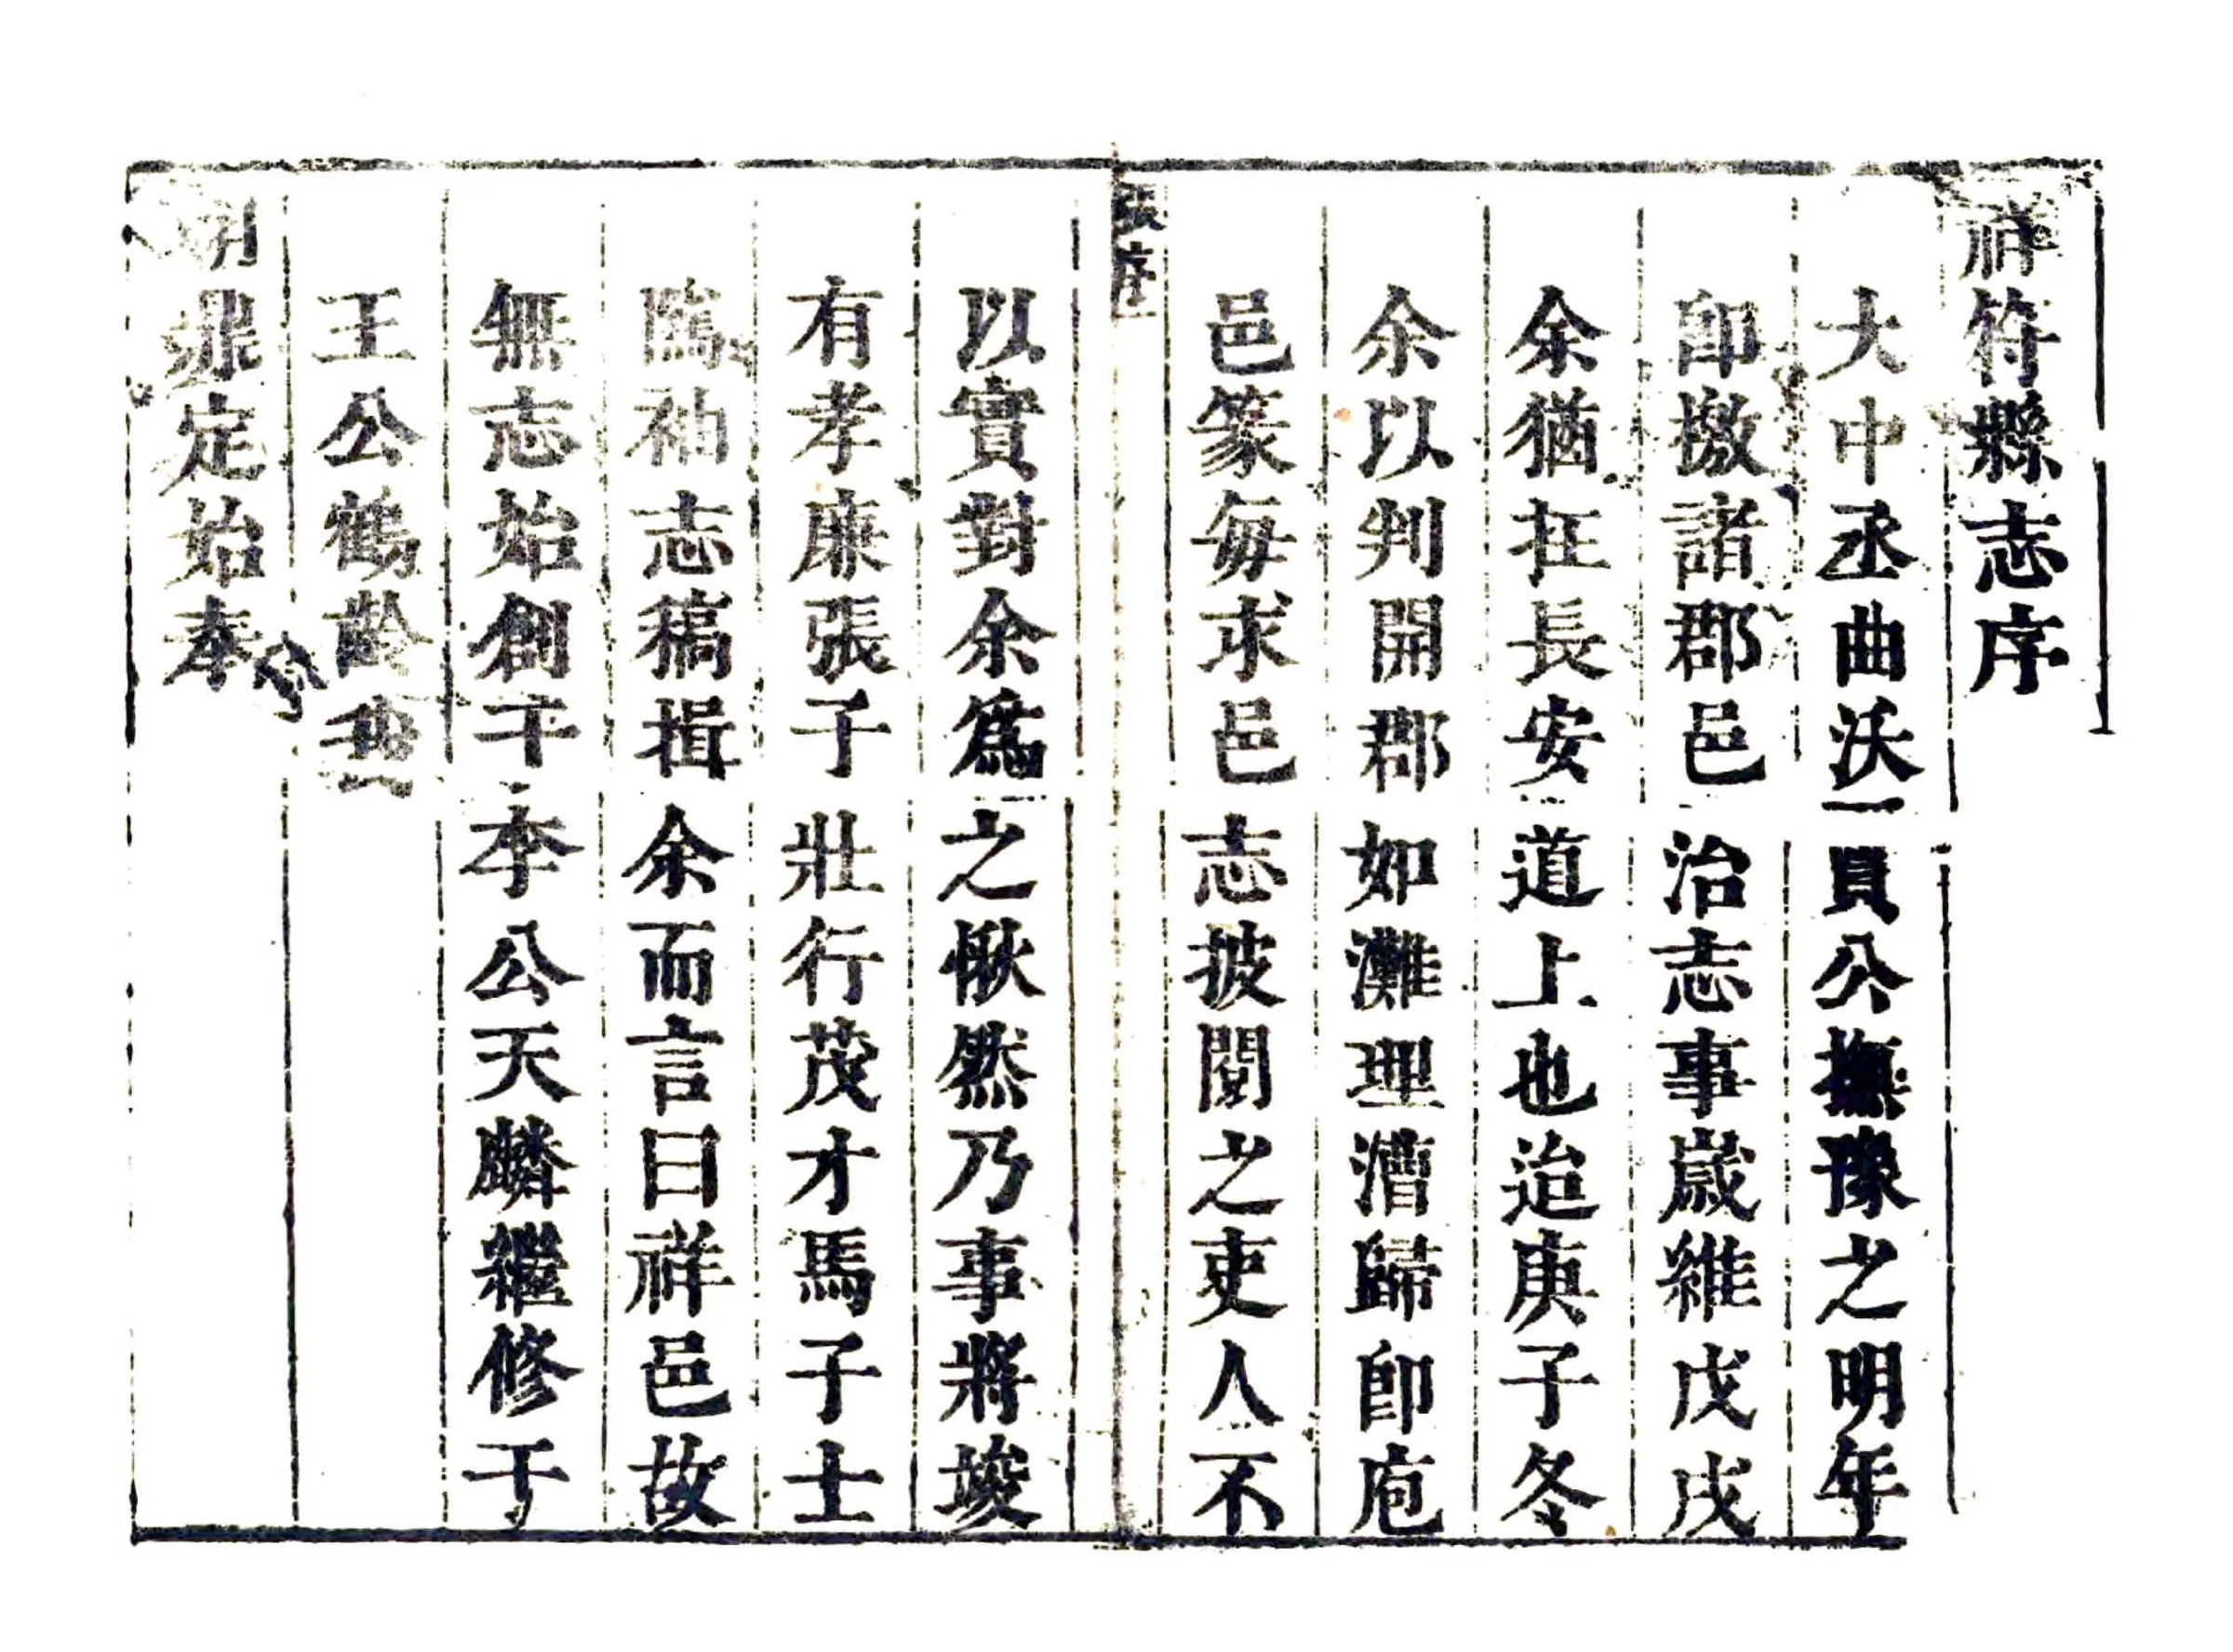 祥符縣志序
大中丞曲沃賈公撫豫之明年
卽檄諸郡邑治志事歲維戊戌
余猶在長安道上也迨庚子冬
余以判開郡如灘理漕歸卽庖
邑篆每求邑志披閱之吏人不
張序
以實對余爲之愀然乃事將竣
有孝廉張子壯行茂才馬子士
隲袖志稿揖余而言曰祥邑故
無志始創于李公天麟繼修于
王公鶴齡
明鼎定始奉